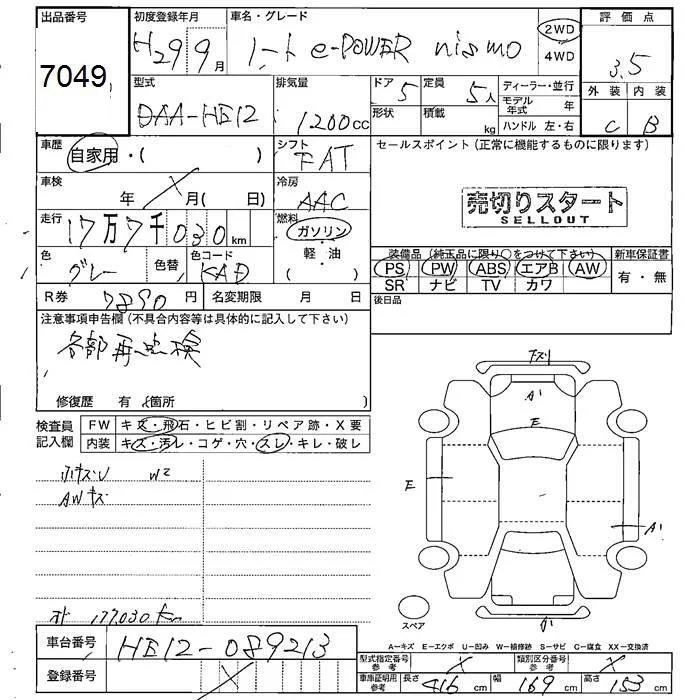 出品番号 初度登録年月 車名・グレード 2WD 評価点
7049 H29 9月 ノート e-POWER nismo 4WD 3.5
型式 排気量 ドア 定員 ディーラー・並行 外装 内装
DAA-HE12 1200cc 5 5人 モデル年式 年 C B
形状 積載 kg ハンドル 左・右
車歴 自家用・( ) シフト FAT セールスポイント(正常に機能するものに限ります)
車検 年 月( 日) 冷房 AAC 売切りスタート
SELLOUT
走行 17万7千030km 燃料 ガソリン
軽・油
( )
色 グレー 色替 色コード KAD 装備品(純正品に限り○をつけて下さい) 新車保証書
PS PW ABS エアB AW 有・無
SR ナビ TV カワ
R券 7890円 名変期限 月 日 後日品
注意事項申告欄(不具合内容等は具体的に記入して下さい)
各部再点検
修復歴 有(箇所 )
検査員記入欄 FW キズ・飛石・ヒビ割・リペア跡・X要
内装 キズ・汚レ・コゲ・穴・スレ・キレ・破レ
W2
AWキズ
177,030km
下ズリ
A1
E
E
A1
スペア
A-キズ E-エクボ U-凹み W-補修跡 S-サビ C-腐食 XX-交換済
車台番号 HE12-089213 型式指定番号 参考 類別区分番号 参考
登録番号 車庫証明用 参考 長さ 416cm 幅 169cm 高さ 153cm